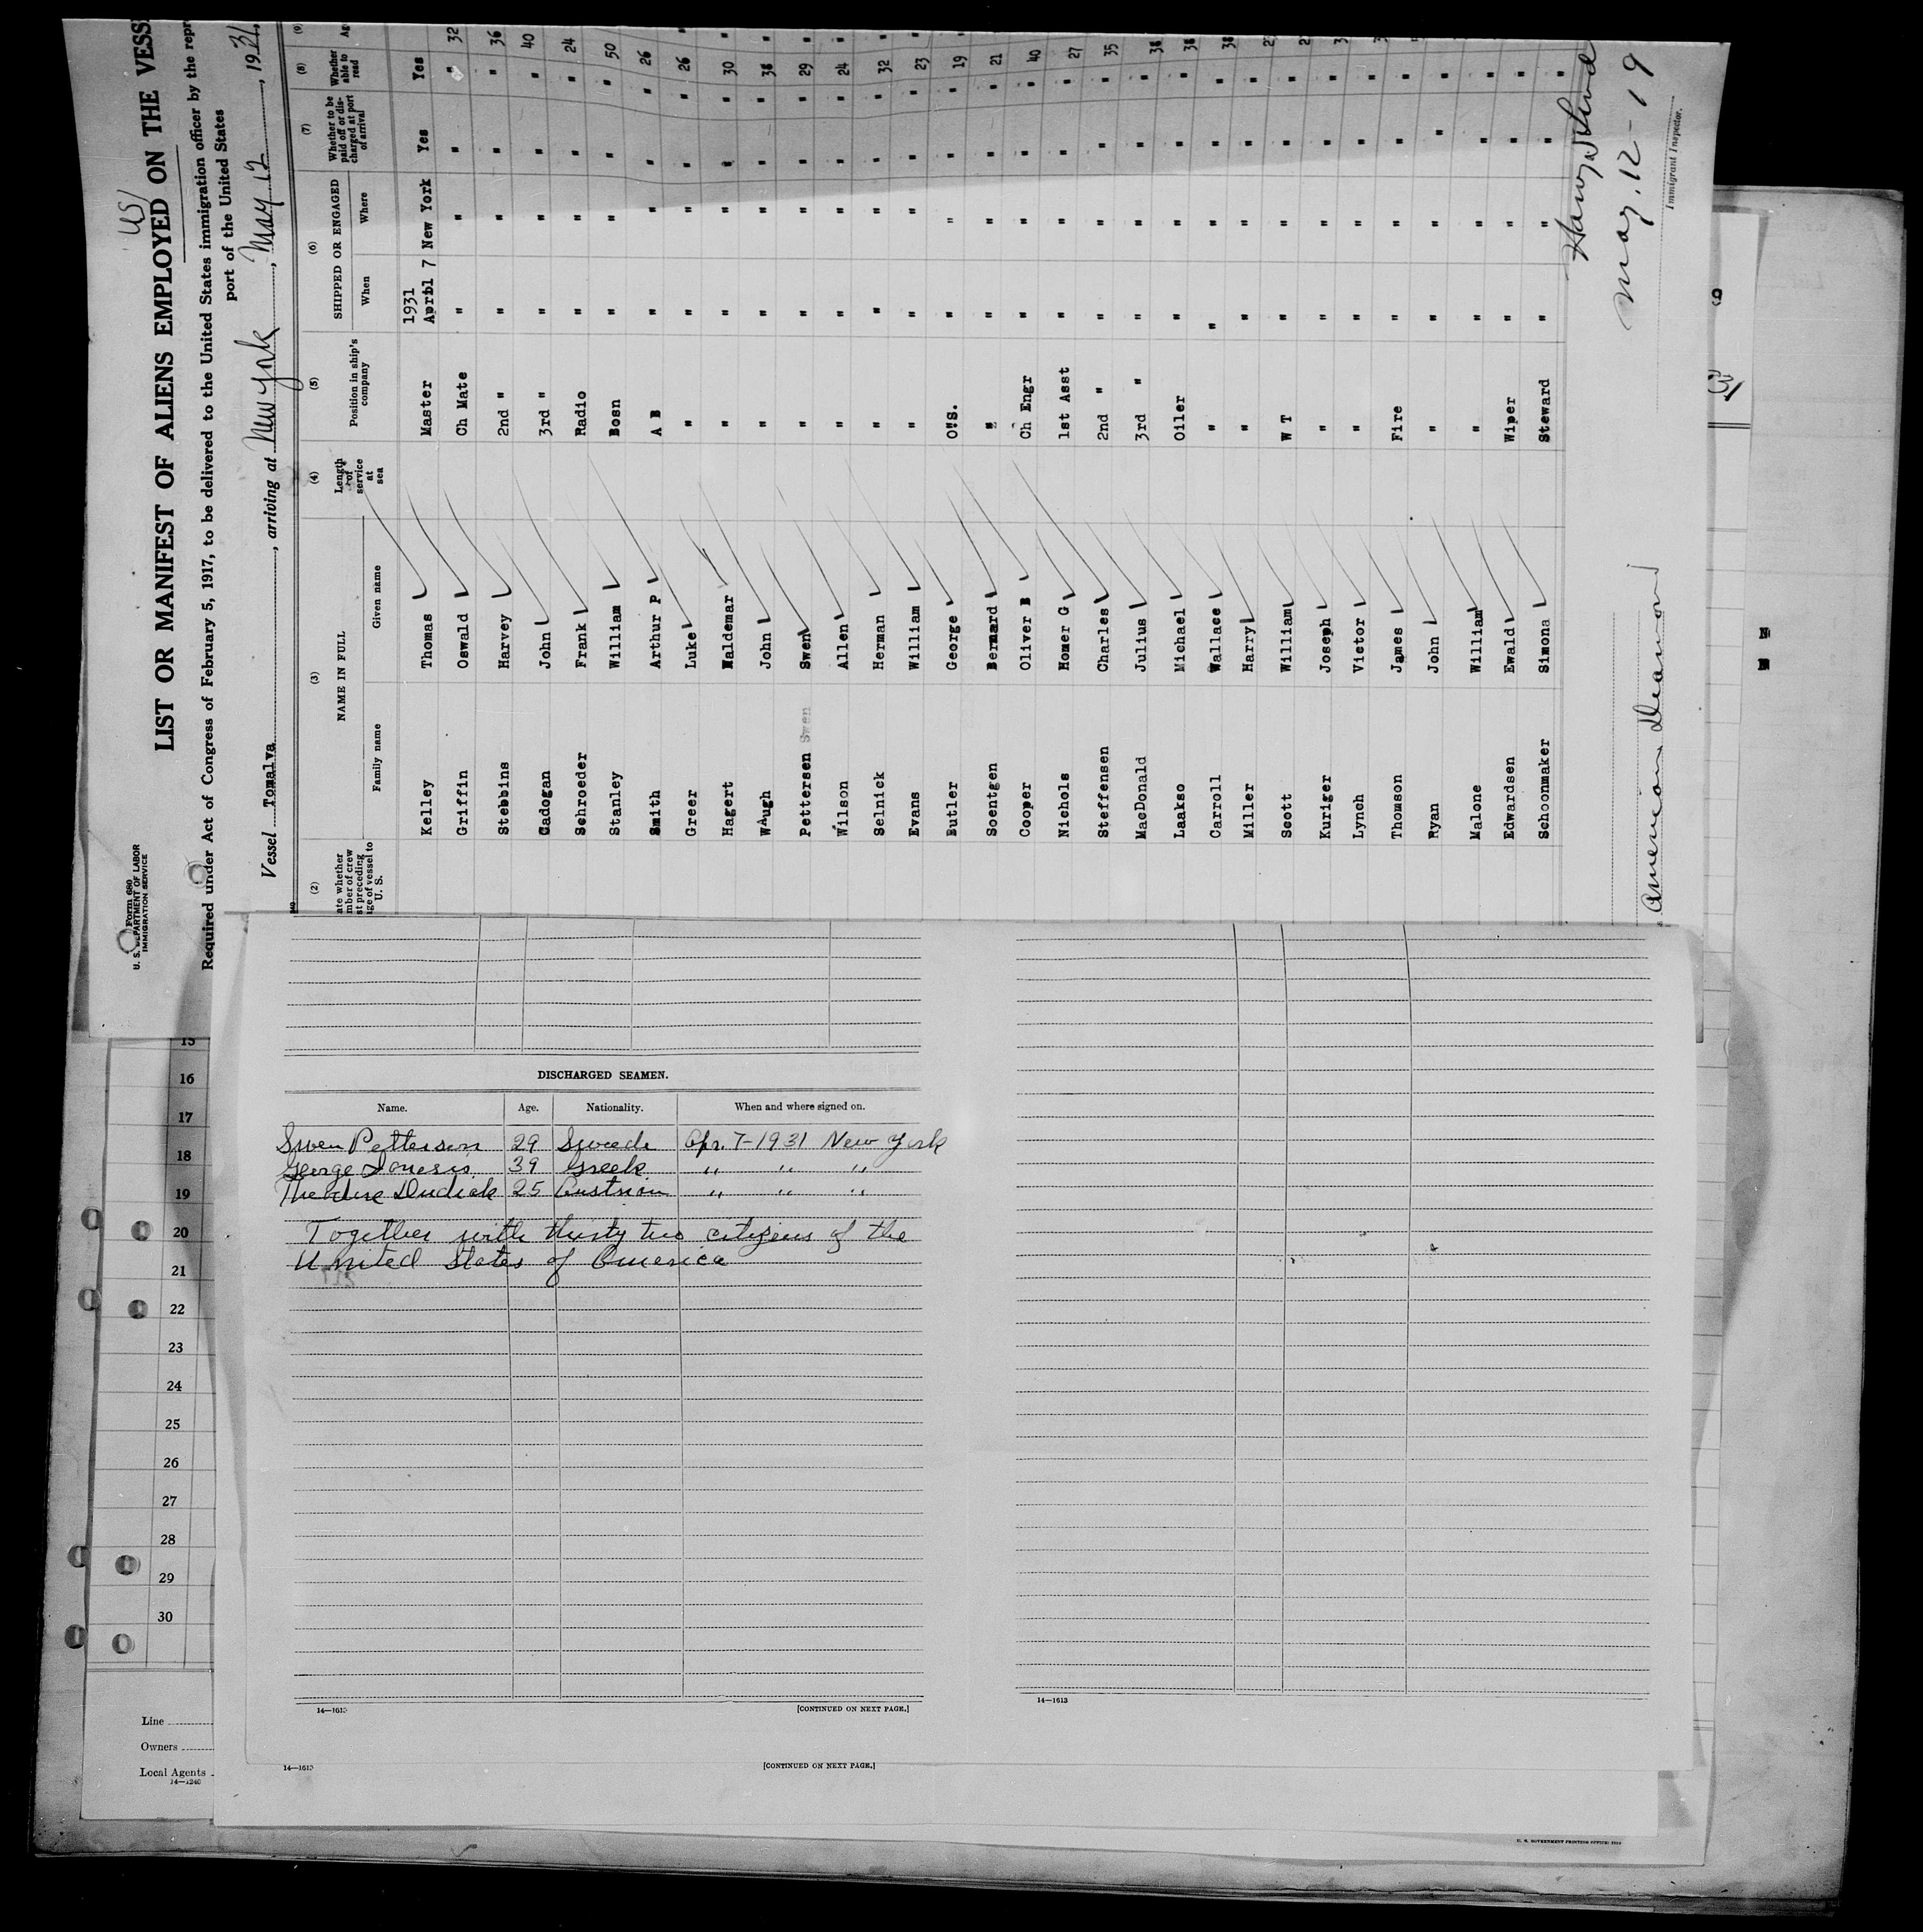 U. S. DEPARTMENT OF LABOR
IMMIGRATION SERVICE
Form 680
US
LIST OR MANIFEST OF ALIENS EMPLOYED ON THE
Required under Act of Congress of February 5, 1917, to be delivered to the United States immigration officer by the
port of the United States
Vessel Tomalva, arriving at New York, May 12, 1931.
(2) (3) (4) (5) (6) (7) (8) (9)
NAME IN FULL
Family name Given name
Length of service at sea
Position in ship's company
SHIPPED OR ENGAGED
When Where
Whether to be paid off or discharged at port of arrival
Whether able to read
Kelley Thomas Master 1931 Aprbl 7 New York Yes Yes
Griffin Oswald Ch Mate " " " " 32
Stebbins Harvey 2nd " " " " " 36
Cadogan John 3rd " " " " " 40
Schroeder Frank Radio " " " " 24
Stanley William Bosn " " " " 50
Smith Arthur P A B " " " " 26
Greer Luke " " " " " 26
Hagert Waldemar " " " " " 30
WAugh John " " " " " 38
Pettersen Swen Swen " " " " " 29
Wilson Allen " " " " " 24
Selnick Herman " " " " " 32
Evans William " " " " " 23
Butler George O"S. " " " " 19
Soentgen Bernard " " " " " 21
Cooper Oliver B Ch Engr " " " " 40
Nichols Homer G 1st Asst " " " " 27
Steffensen Charles 2nd " " " " " 35
MacDonald Julius 3rd " " " " " 38
Laakso Michael Oiler " " " " 38
Carroll Wallace " " " " " 38
Miller Harry " " " " "
Scott William W T " " " "
Kuriger Joseph " " " " "
Lynch Victor " " " " "
Thomson James Fire " " " "
Ryan John " " " " "
Malone William " " " " "
Edwardsen Ewald Wiper " " " "
Schoonmaker Simona Steward " " " "
May. 12 - 19
Immigrant Inspector.
American
DISCHARGED SEAMEN.
Name. Age. Nationality. When and where signed on.
Swen Petterson 29 Swede Apr. 7-1931 New York
George 39 Greek " " "
Theodore Dudiak 25 Austrian " " "
Together with thirty two citizens of the
United States of America
14—1613 [CONTINUED ON NEXT PAGE.]
14—1613
14—1613 [CONTINUED ON NEXT PAGE.]
15
16
17
18
19
20
21
22
23
24
25
26
27
28
29
30
Line
Owners
Local Agents
14—1240
U. S. GOVERNMENT PRINTING OFFICE